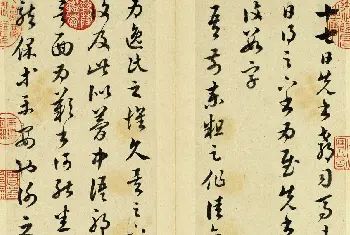 十七日先書郗司馬未
日得足下書為慰先書
復數字
吾前東粗足作佳觀
為逸民之懷久矣足
復及此似夢中語耶
言面為歎書何能悉
龍保等平安也謝之